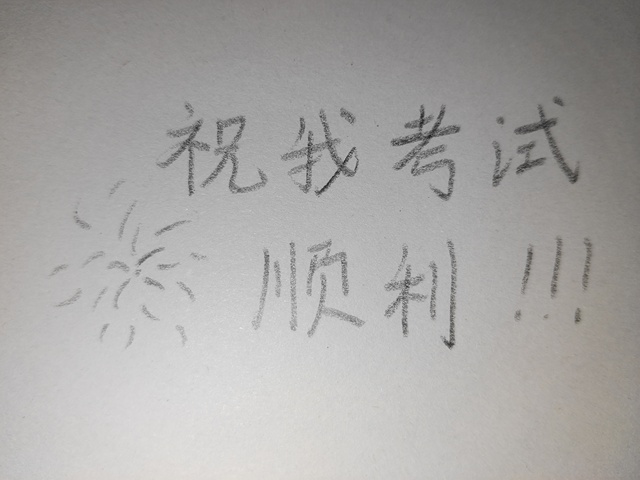 祝我考试
顺利!!!